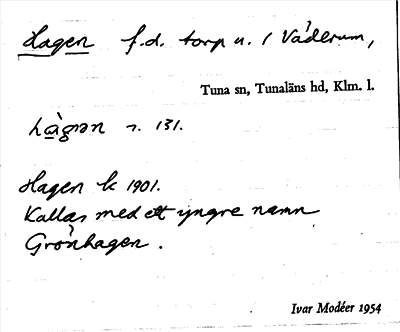 Hagen f.d. torp u. / Våderum,
Tuna sn, Tunaläns hd, Klm. l.
hàgən 131.
Hagen k 1901.
Kallas med ett yngre namn
Grönhagen.
Ivar Modéer 1954